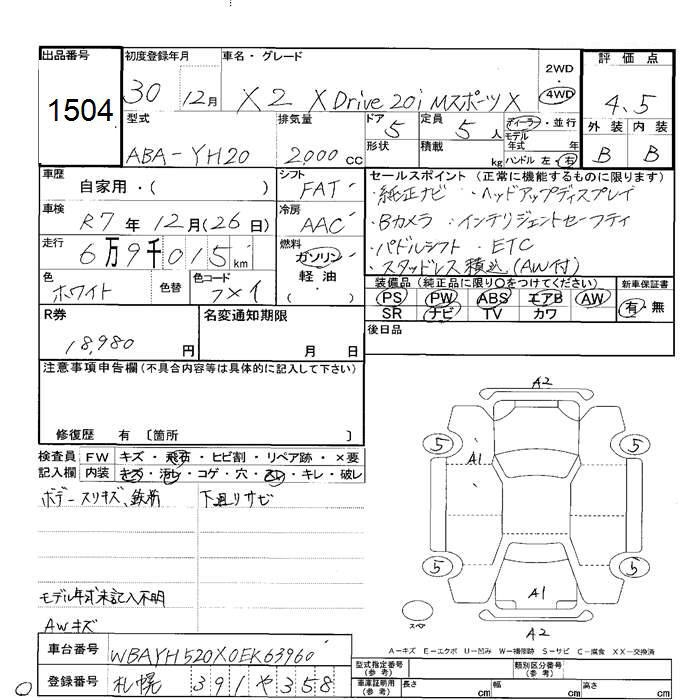 出品番号 初度登録年月 車名・グレード 2WD 4WD 評価点
1504 30 12月 X2 X Drive 20i Mスポーツ X 4.5
型式 排気量 ドア 5 定員 5人 ディーラー・並行 外装 内装
ABA-YH20 2,000cc 形状 積載 kg モデル年式 年 ハンドル 左・右 B B
車歴 シフト セールスポイント (正常に機能するものに限ります)
自家用・( ) FAT ・純正ナビ ・ヘッドアップディスプレイ
車検 冷房 ・Bカメラ ・インテリジェントセーフティ
R7年12月(26日) AAC ・パドルシフト ・ETC
走行 6万9千015km 燃料 ガソリン ・スタッドレス積込(AW付)
軽油 ( ) 装備品 (純正品に限り○をつけてください) 新車保証書
色 ホワイト 色替 色コード PS PW ABS エアB AW 有・無
SR ナビ TV カワ
R券 名変通知期限 後日品
18,980円 月 日
注意事項申告欄 (不具合内容等は具体的に記入して下さい)
修復歴 有 〔箇所 〕
A2
5 A1 5
検査員 FW キズ・飛石・ヒビ割・リペア跡・×要
記入欄 内装 キズ・汚レ・コゲ・穴・スレ・キレ・破レ
ボデースリキズ、鉄粉 下廻リサビ
5 5
A1
スペア
A2
モデル年式未記入不明
AWキズ
A-キズ E-エクボ U-凹み W-補修跡 S-サビ C-腐食 XX-交換済
車台番号 WBAYH520X0EK63960
登録番号 札幌 391 や 358
型式指定番号(参考) 類別区分番号(参考)
車庫証明用(参考) 長さ cm 幅 cm 高さ cm